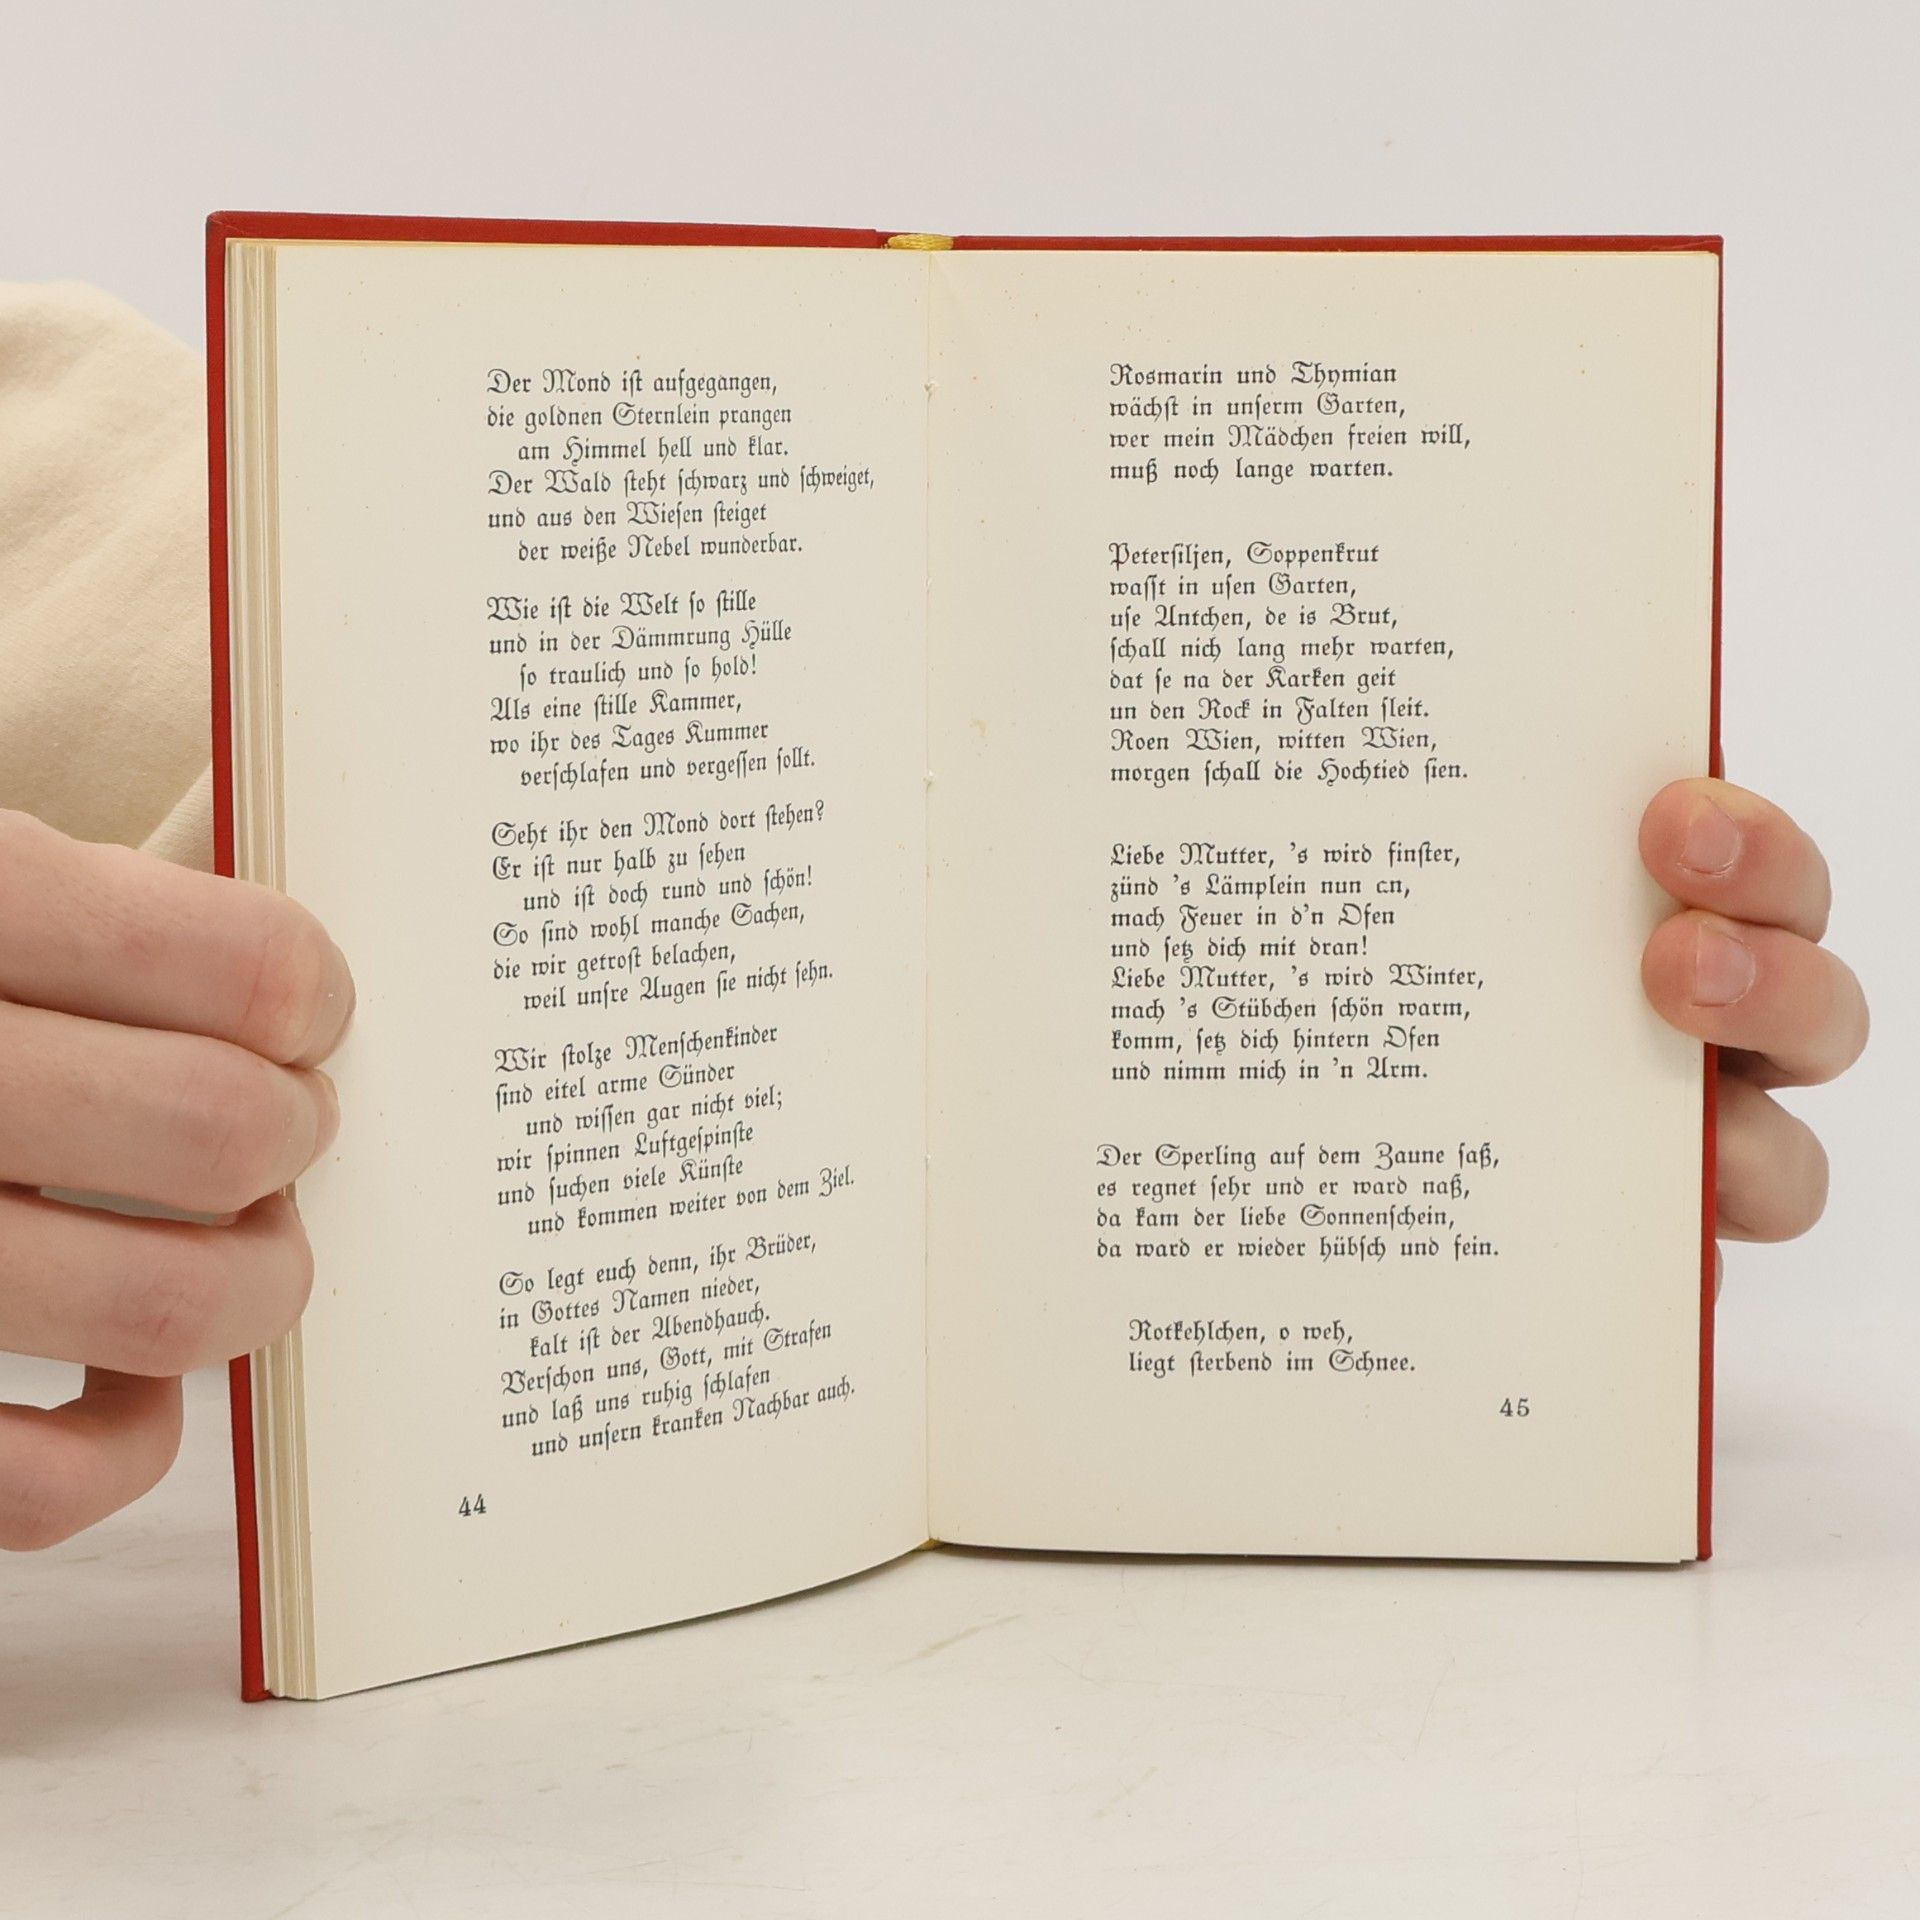 Der Mond iſt aufgegangen,
die goldnen Sternlein prangen
am Himmel hell und klar.
Der Wald ſteht ſchwarz und ſchweiget,
und aus den Wieſen ſteiget
der weiße Nebel wunderbar.
Wie iſt die Welt ſo ſtille
und in der Dämmrung Hülle
ſo traulich und ſo hold!
Als eine ſtille Kammer,
wo ihr des Tages Kummer
verſchlafen und vergeſſen ſollt.
Seht ihr den Mond dort ſtehen?
Er iſt nur halb zu ſehen
und iſt doch rund und ſchön!
So ſind wohl manche Sachen,
die wir getroſt belachen,
weil unſre Augen ſie nicht ſehn.
Wir ſtolze Menſchenkinder
ſind eitel arme Sünder
und wiſſen gar nicht viel;
wir ſpinnen Luftgeſpinſte
und ſuchen viele Künſte
und kommen weiter von dem Ziel.
So legt euch denn, ihr Brüder,
in Gottes Namen nieder,
kalt iſt der Abendhauch.
Verſchon uns, Gott, mit Strafen
und laß uns ruhig ſchlafen
und unſern kranken Nachbar auch.
44
Rosmarin und Thymian
wächſt in unſerm Garten,
wer mein Mädchen freien will,
muß noch lange warten.
Peterſiljen, Soppenkrut
waſſt in uſen Garten,
uſe Antchen, de is Brut,
ſchall nich lang mehr warten,
dat ſe na der Karken geit
un den Rock in Falten ſleit.
Roen Wien, witten Wien,
morgen ſchall die Hochtied ſien.
Liebe Mutter, ’s wird finſter,
zünd ’s Lämplein nun an,
mach Feuer in d’n Ofen
und ſetz dich mit dran!
Liebe Mutter, ’s wird Winter,
mach ’s Stübchen ſchön warm,
komm, ſetz dich hintern Ofen
und nimm mich in ’n Arm.
Der Sperling auf dem Zaune ſaß,
es regnet ſehr und er ward naß,
da kam der liebe Sonnenſchein,
da ward er wieder hübſch und fein.
Rotkehlchen, o weh,
liegt ſterbend im Schnee.
45